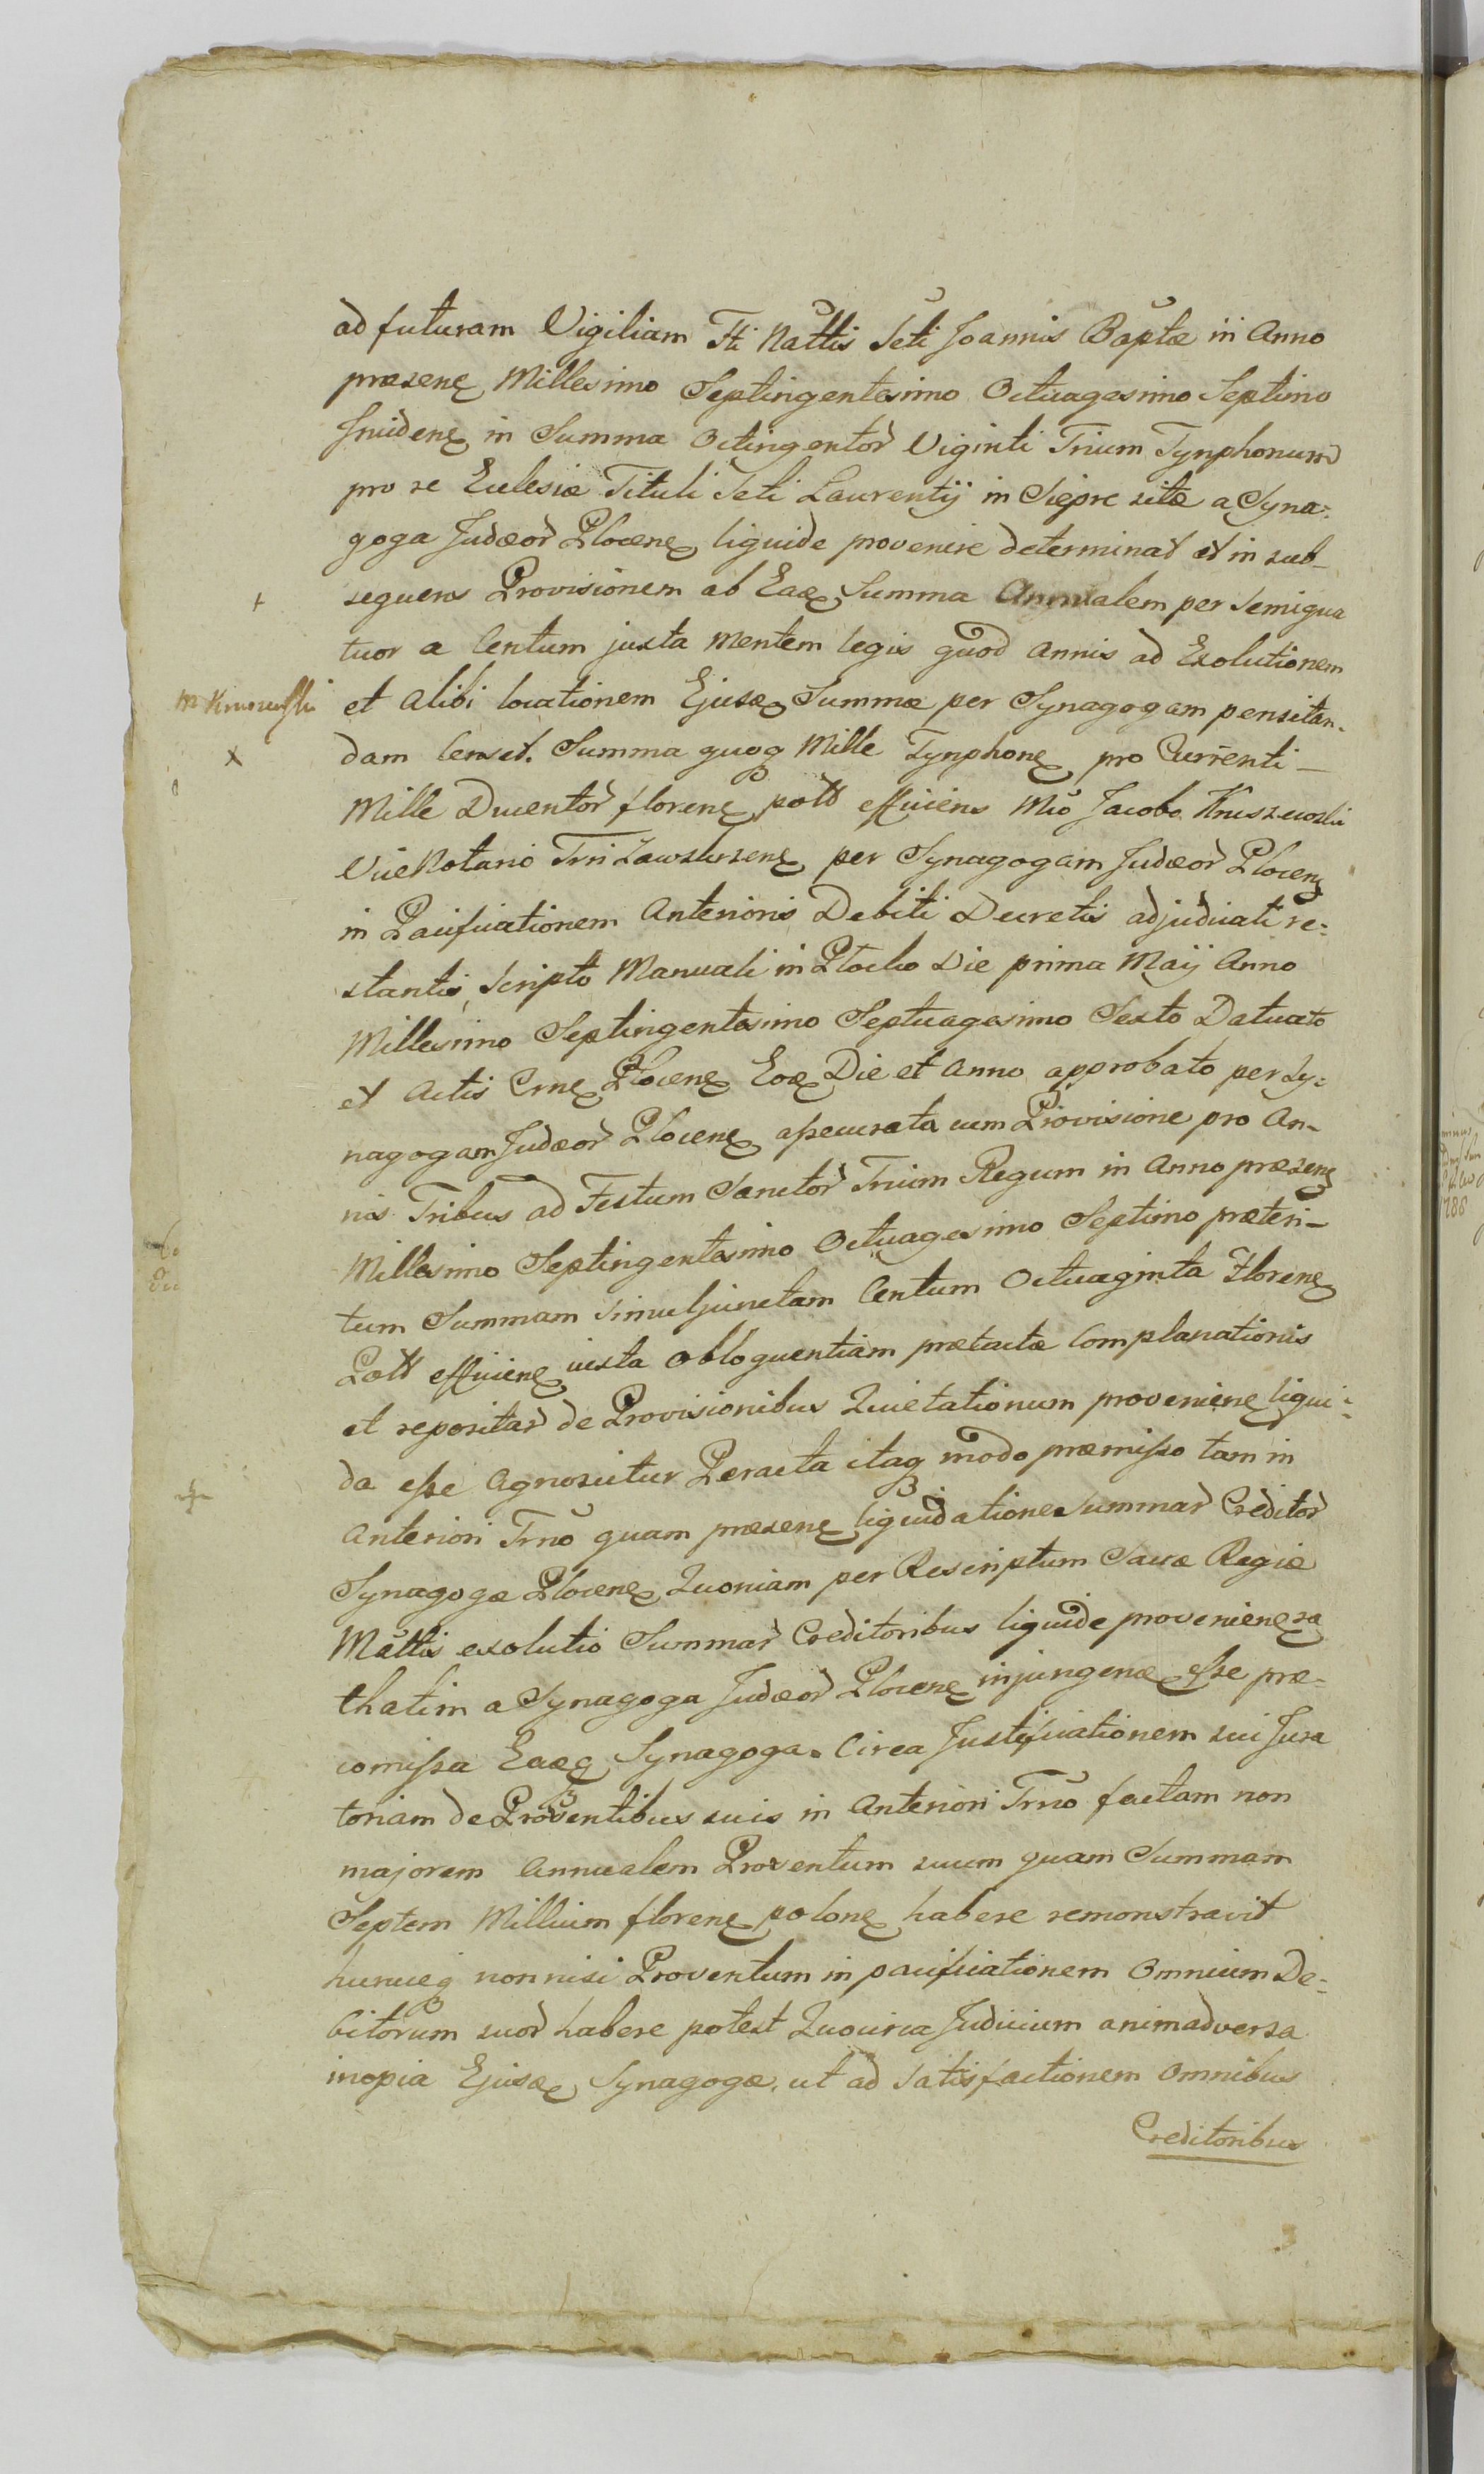 ad futuram Vigiliam Fti Nattis Scti Joannis Baptæ in Anno
præsenę Millesimo Septingentesimo Octuagesimo Septimo
Incidenę in Summa Octingentor Viginti Trium Tynphonum
pro se Ecclesiæ Tituli Scti Laurentij in Siepre sitæ a Syna=
goga Judæor Plocenę liquide provenire determinat et in sub-
sequens Provisionem ab Eaę Summa Annualem per Semiqua
tuor a Centum juxta Mentem legis quod Annis ad Exolutionem
M Kruszewski
et Alibi locationem Ejusę Summæ per Synagogam pensitan-
dam Censet. Summa quoq Mille Tynphonę pro Currenti-
Mille Ducentor florenę poll efficiens Mco Jacobo Kruszewski
Vice Notario Trri Zawskrzenę per Synagogam Judæor Plocenę
in Pacificationem Anterioris Debiti Decretis adjudicati re=
stantis, Scripto Manuali in Plocko Die prima Maij Anno
Millesimo Septingentesimo Septuagesimo Sexto Datuato
et Actis Crnę Plocenę Eoę Die et Anno approbato per Sy=
nagogam Judæor Plocenę assecurata cum Provisione pro An-
nis Tribus ad Festum Sanctor Trium Regum in Anno præsenę
Millesimo Septingentesimo Octuagesimo Septimo præteri-
tum Summam Simuljunctam Centum Octuaginta Florenę
Poll efficienę iuxta obloquentiam prætactæ Complanationis
et repositar de Provisionibus Quietationum provenienę liqui=
da esse Agnoscitur Peracta itaq modo præmisso tam in
Anteriori Trno quam præsenę liquidatione Summar Creditor
Synagogæ Plocenę Quoniam per Rescriptum Sacræ Regiæ
Mattis exolutio Summar Creditoribus liquide provenienę ra
thatim a Synagoga Judæor Plocenę injungenę esse præ=
comissa Eaęq Synagoga. Circa Justificationem sui Jura
toriam de Proventibus suis in Anteriori Trno factam non
majorem Annualem Proventum suum quam Summam
Septem Millium florenę polonę habere remonstravit
huncuęq nonnisi Proventum in pacificationem Omnium De=
bitorum suor habere potest Quocirca Judicium animadversa
inopia Ejusę Synagogæ, ut ad Satisfactionem Omnibus
Creditoribus
1788